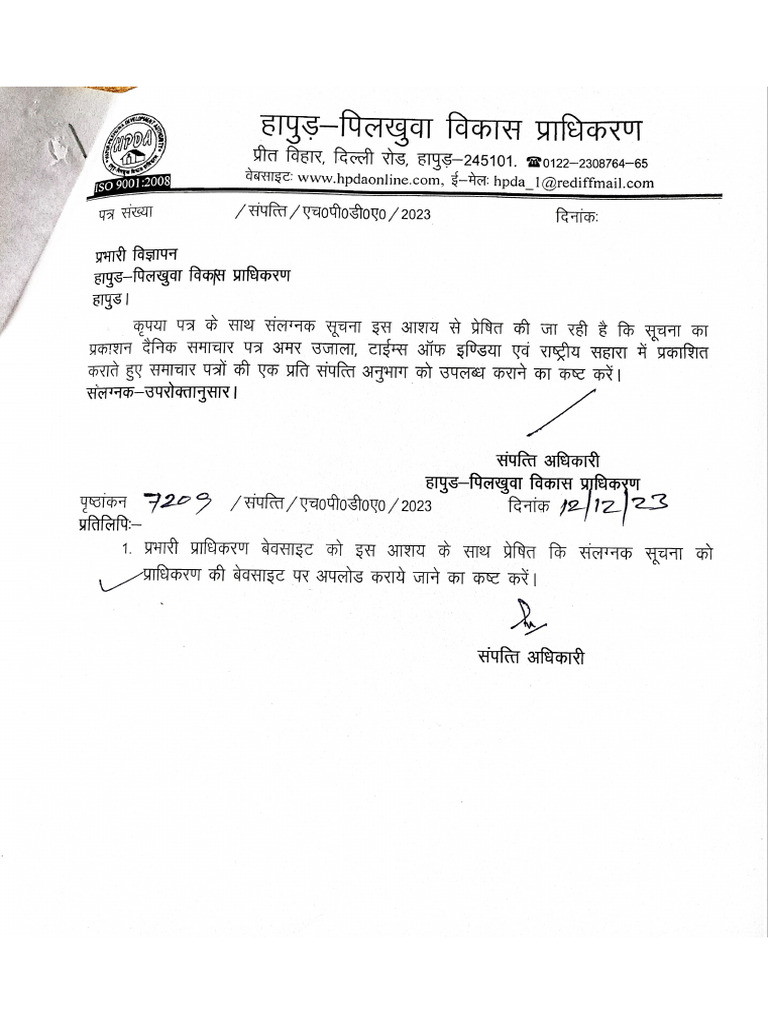 हापुड़–पिलखुवा विकास प्राधिकरण
प्रीत विहार, दिल्ली रोड, हापुड़–245101. ☎0122–2308764–65
वेबसाइटः www.hpdaonline.com, ई–मेलः hpda_1@rediffmail.com
HPDA
ISO 9001:2008
पत्र संख्या /संपत्ति/एच0पी0डी0ए0/2023 दिनांकः
प्रभारी विज्ञापन
हापुड–पिलखुवा विकास प्राधिकरण
हापुड।
कृपया पत्र के साथ संलग्नक सूचना इस आशय से प्रेषित की जा रही है कि सूचना का
प्रकाशन दैनिक समाचार पत्र अमर उजाला, टाईम्स ऑफ इण्डिया एवं राष्ट्रीय सहारा में प्रकाशित
कराते हुए समाचार पत्रों की एक प्रति संपत्ति अनुभाग को उपलब्ध कराने का कष्ट करें।
संलग्नक–उपरोक्तानुसार।
संपत्ति अधिकारी
हापुड–पिलखुवा विकास प्राधिकरण
पृष्ठांकन 7209 /संपत्ति/एच0पी0डी0ए0/2023 दिनांक 12/12/23
प्रतिलिपिः–
1. प्रभारी प्राधिकरण बेवसाइट को इस आशय के साथ प्रेषित कि संलग्नक सूचना को
प्राधिकरण की बेवसाइट पर अपलोड कराये जाने का कष्ट करें।
संपत्ति अधिकारी